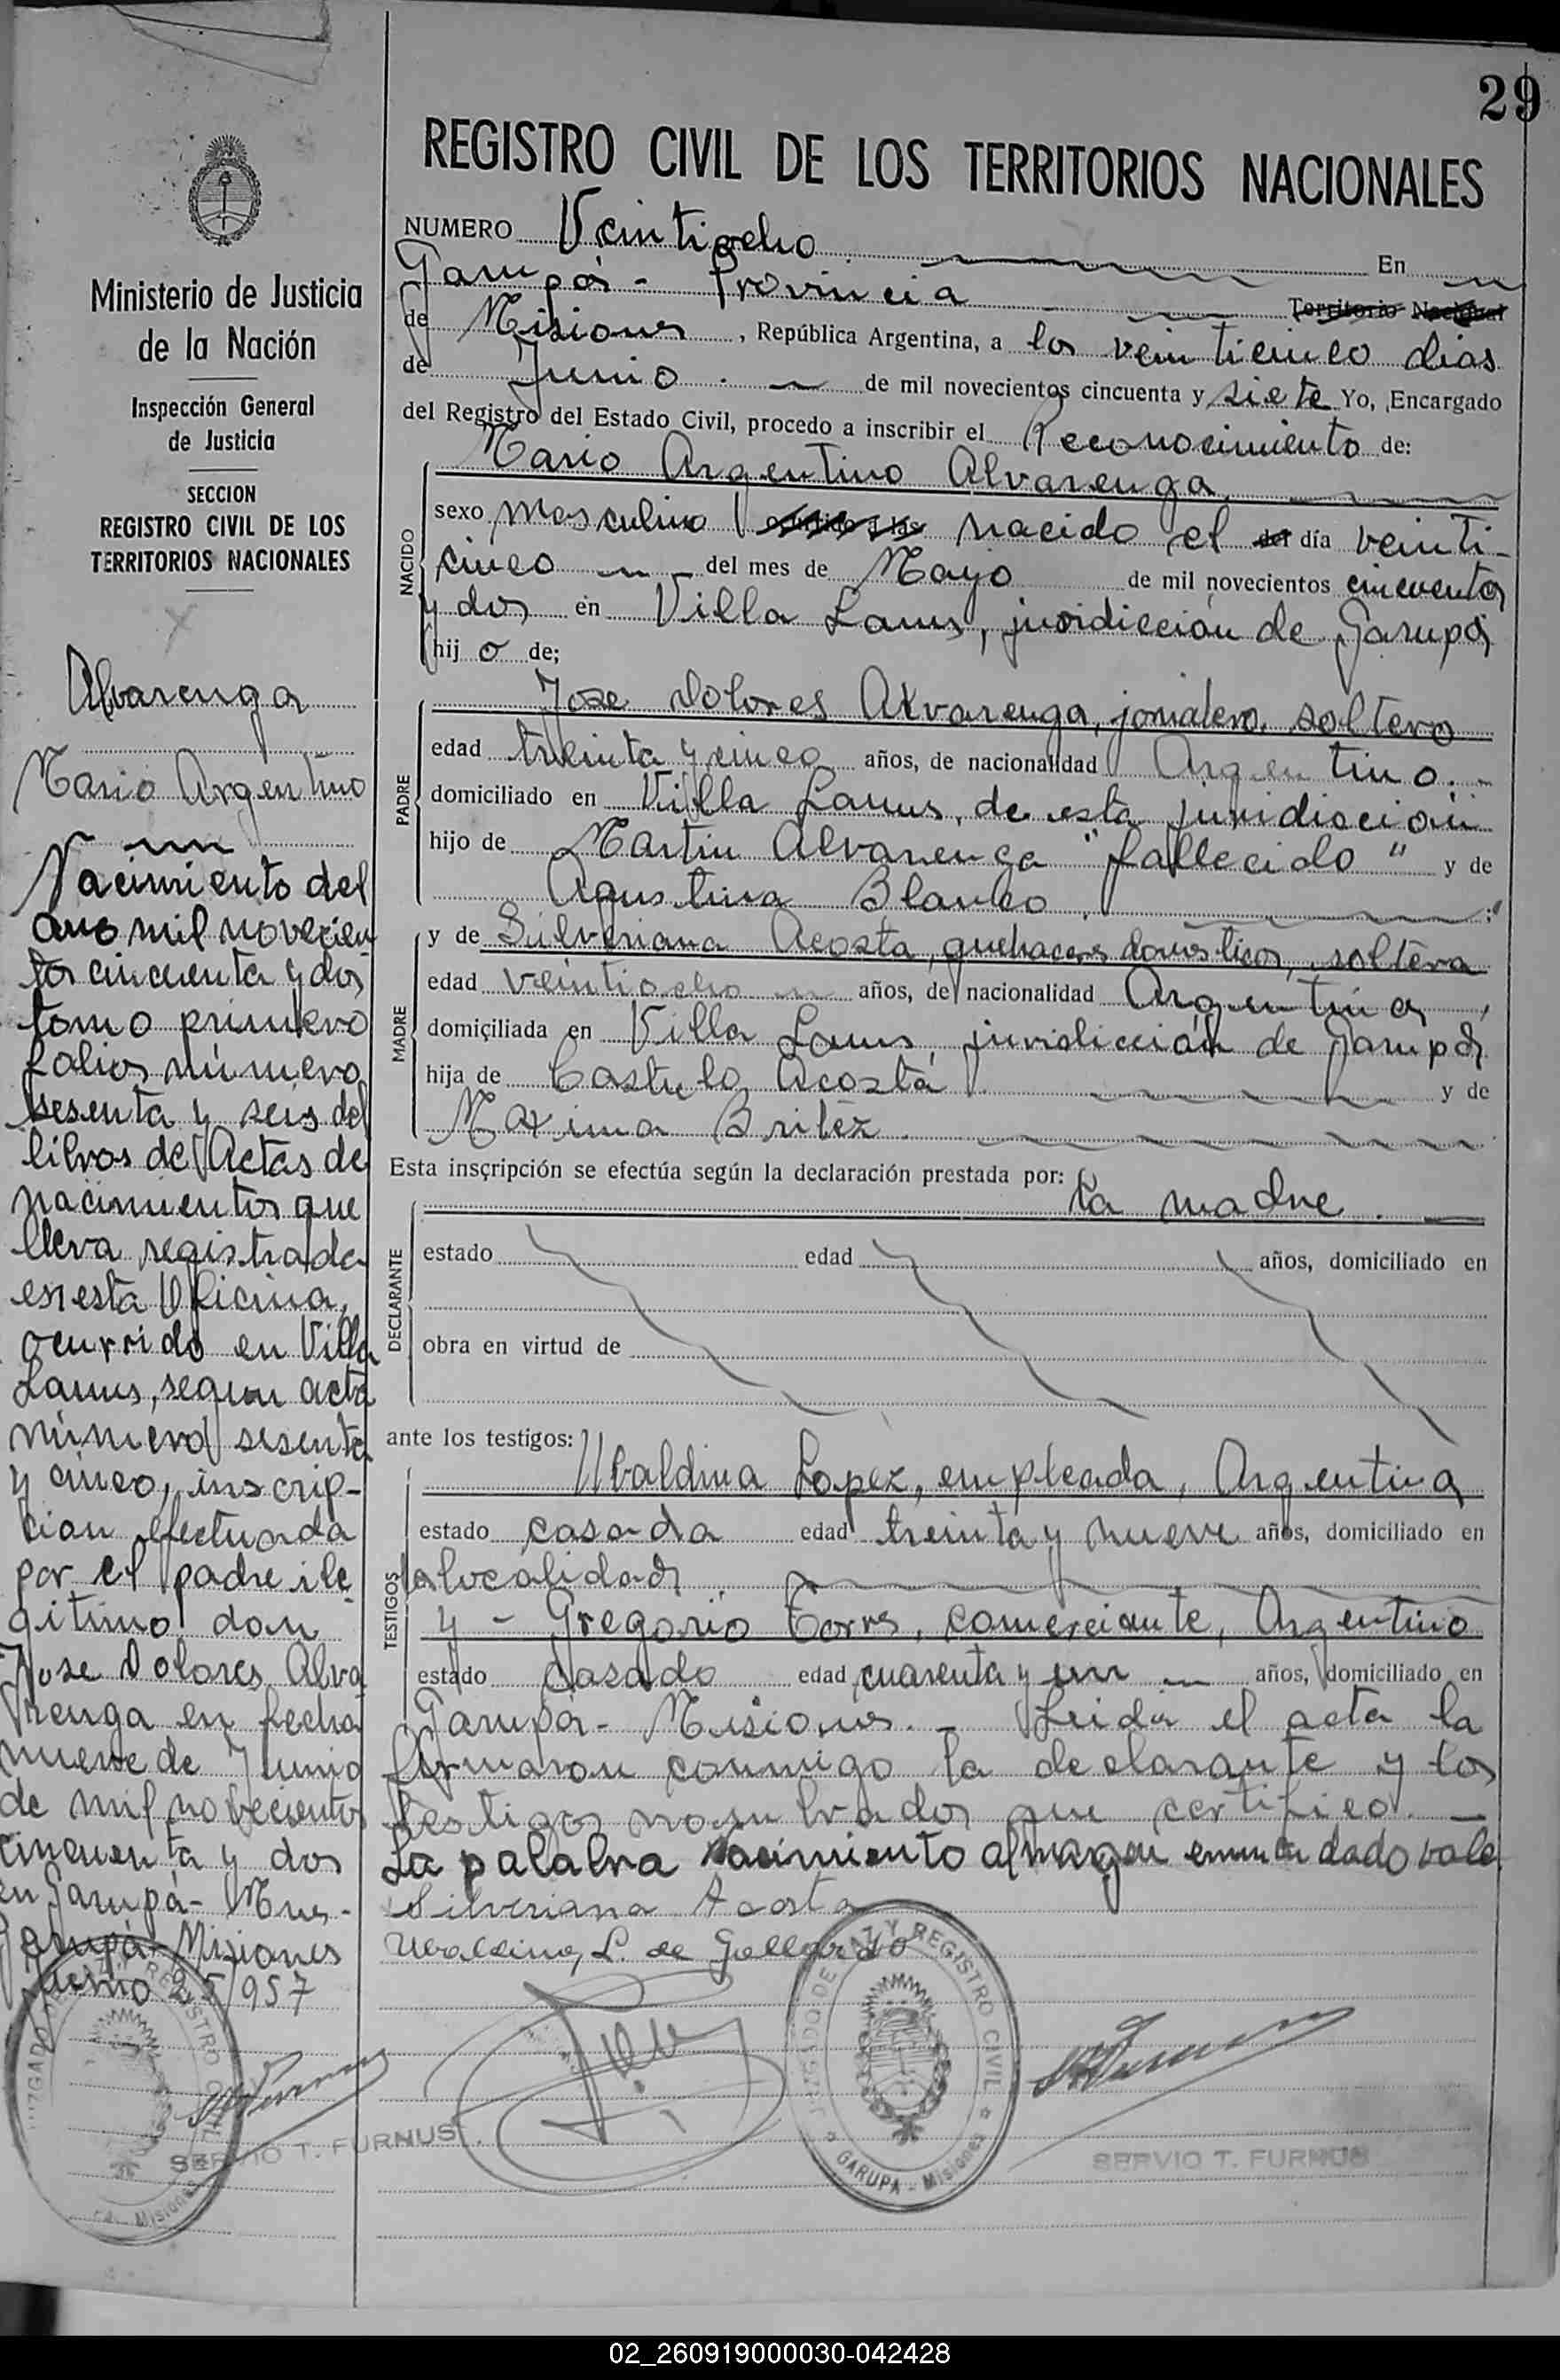 29
REGISTRO CIVIL DE LOS TERRITORIOS NACIONALES
Ministerio de Justicia
de la Nación
Inspección General
de Justicia
SECCION
REGISTRO CIVIL DE LOS
TERRITORIOS NACIONALES
Alvarenga
Mario Argentino
Nacimiento del
año mil novecien
tos cincuenta y dos
tomo primero
folios número
sesenta y seis del
libros de Actas de
nacimientos que
lleva registrada
en esta Oficina,
ocurrido en Villa
Lanus, segun acta
número sesenta
y cinco, inscrip-
cion efectuada
por el padre ile
gitimo don
Jose Dolores Alva
renga en fecha
nueve de Junio
de mil novecientos
cincuenta y dos
en Garupá- Mnes.-
Garupá- Misiones
Junio 25/957
SERVIO T. FURNUS
NUMERO Veintiocho En
Garupá - Provincia Territorio Nacional
de Misiones, República Argentina, a los veinticinco dias
de Junio. de mil novecientos cincuenta y siete Yo, Encargado
del Registro del Estado Civil, procedo a inscribir el Reconocimiento de:
NACIDO
Mario Argentino Alvarenga
sexo masculino nacido el del día veinti-
cinco del mes de Mayo de mil novecientos cincuenta
y dos en Villa Lanus, juridicción de Garupá
hij o de;
PADRE
Jose Dolores Alvarenga, jornalero, soltero
edad treinta y cinco años, de nacionalidad Argentino.
domiciliado en Villa Lanus, de esta juridiscion
hijo de Martin Alvarenga "fallecido" y de
Agustina Blanco
MADRE
y de Silveriana Acosta, quehaceres domesticos, soltera
edad veintiocho años, de nacionalidad Argentina,
domiciliada en Villa Lanus, juridicción de Garupá
hija de Castulo Acosta y de
Maxima Britez.
Esta inscripción se efectúa según la declaración prestada por: la madre.
DECLARANTE
estado edad años, domiciliado en
obra en virtud de
ante los testigos:
TESTIGOS
Ubaldina Lopez, empleada, Argentina
estado casada edad treinta y nueve años, domiciliado en
la localidad
y - Gregorio Torres, comerciante, Argentino
estado casado edad cuarenta y un años, domiciliado en
Garupá- Misiones.- Leida el acta la
firmaron conmigo la declarante y los
testigos nombrados que certifico.
La palabra nacimiento al margen enmendado vale
Silveriana Acosta
Ubaldina L. de Gallardo
JUZGADO DE PAZ Y REGISTRO CIVIL
GARUPA - Misiones
SERVIO T. FURNUS
02_260919000030-042428